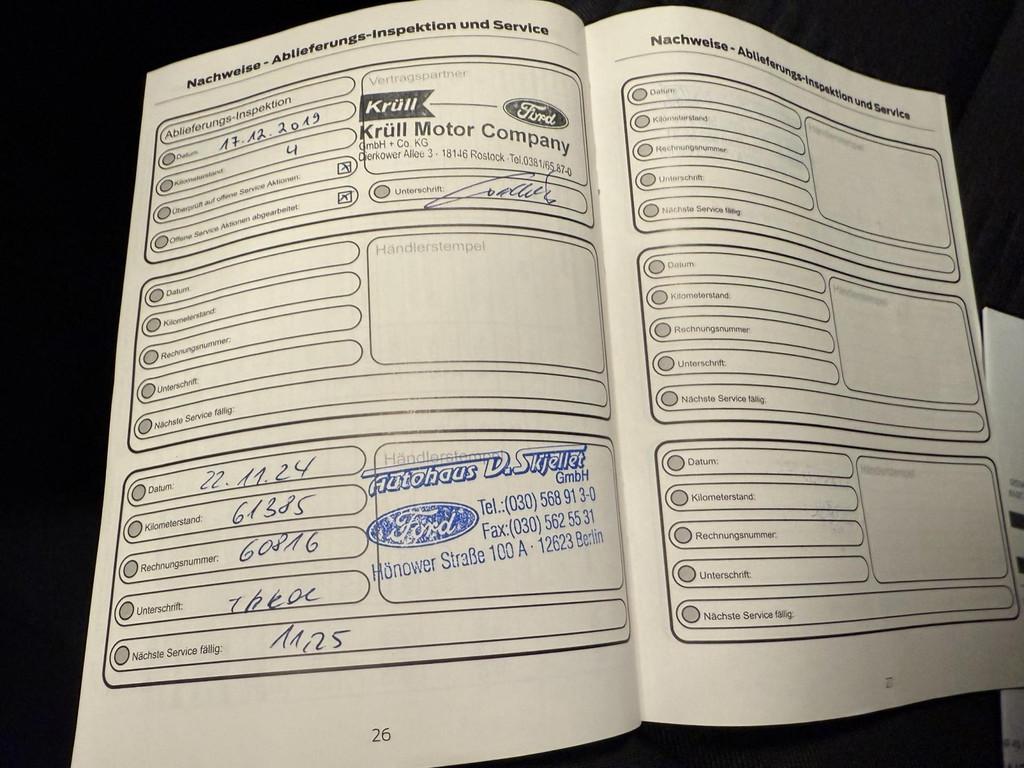 Nachweise - Ablieferungs-Inspektion und Service
Ablieferungs-Inspektion
Datum: 17.12.2019
Kilometerstand: 4
Überprüft auf offene Service Aktionen:
Offene Service Aktionen abgearbeitet:
Vertragspartner
Krüll
Ford
Krüll Motor Company
GmbH + Co. KG
Dierkower Allee 3 · 18146 Rostock · Tel.0381/65 87-0
Unterschrift:
Datum:
Kilometerstand:
Rechnungsnummer:
Unterschrift:
Nächste Service fällig:
Händlerstempel
Datum: 22.11.24
Kilometerstand: 61385
Rechnungsnummer: 60816
Unterschrift:
Nächste Service fällig: 11/25
Händlerstempel
Autohaus D. Skjellet
GmbH
Ford
Tel.:(030) 568 91 3-0
Fax:(030) 562 55 31
Hönower Straße 100 A · 12623 Berlin
26
Nachweise - Ablieferungs-Inspektion und Service
Datum:
Kilometerstand:
Rechnungsnummer:
Unterschrift:
Nächste Service fällig:
Händlerstempel
Datum:
Kilometerstand:
Rechnungsnummer:
Unterschrift:
Nächste Service fällig:
Händlerstempel
Datum:
Kilometerstand:
Rechnungsnummer:
Unterschrift:
Nächste Service fällig:
Händlerstempel